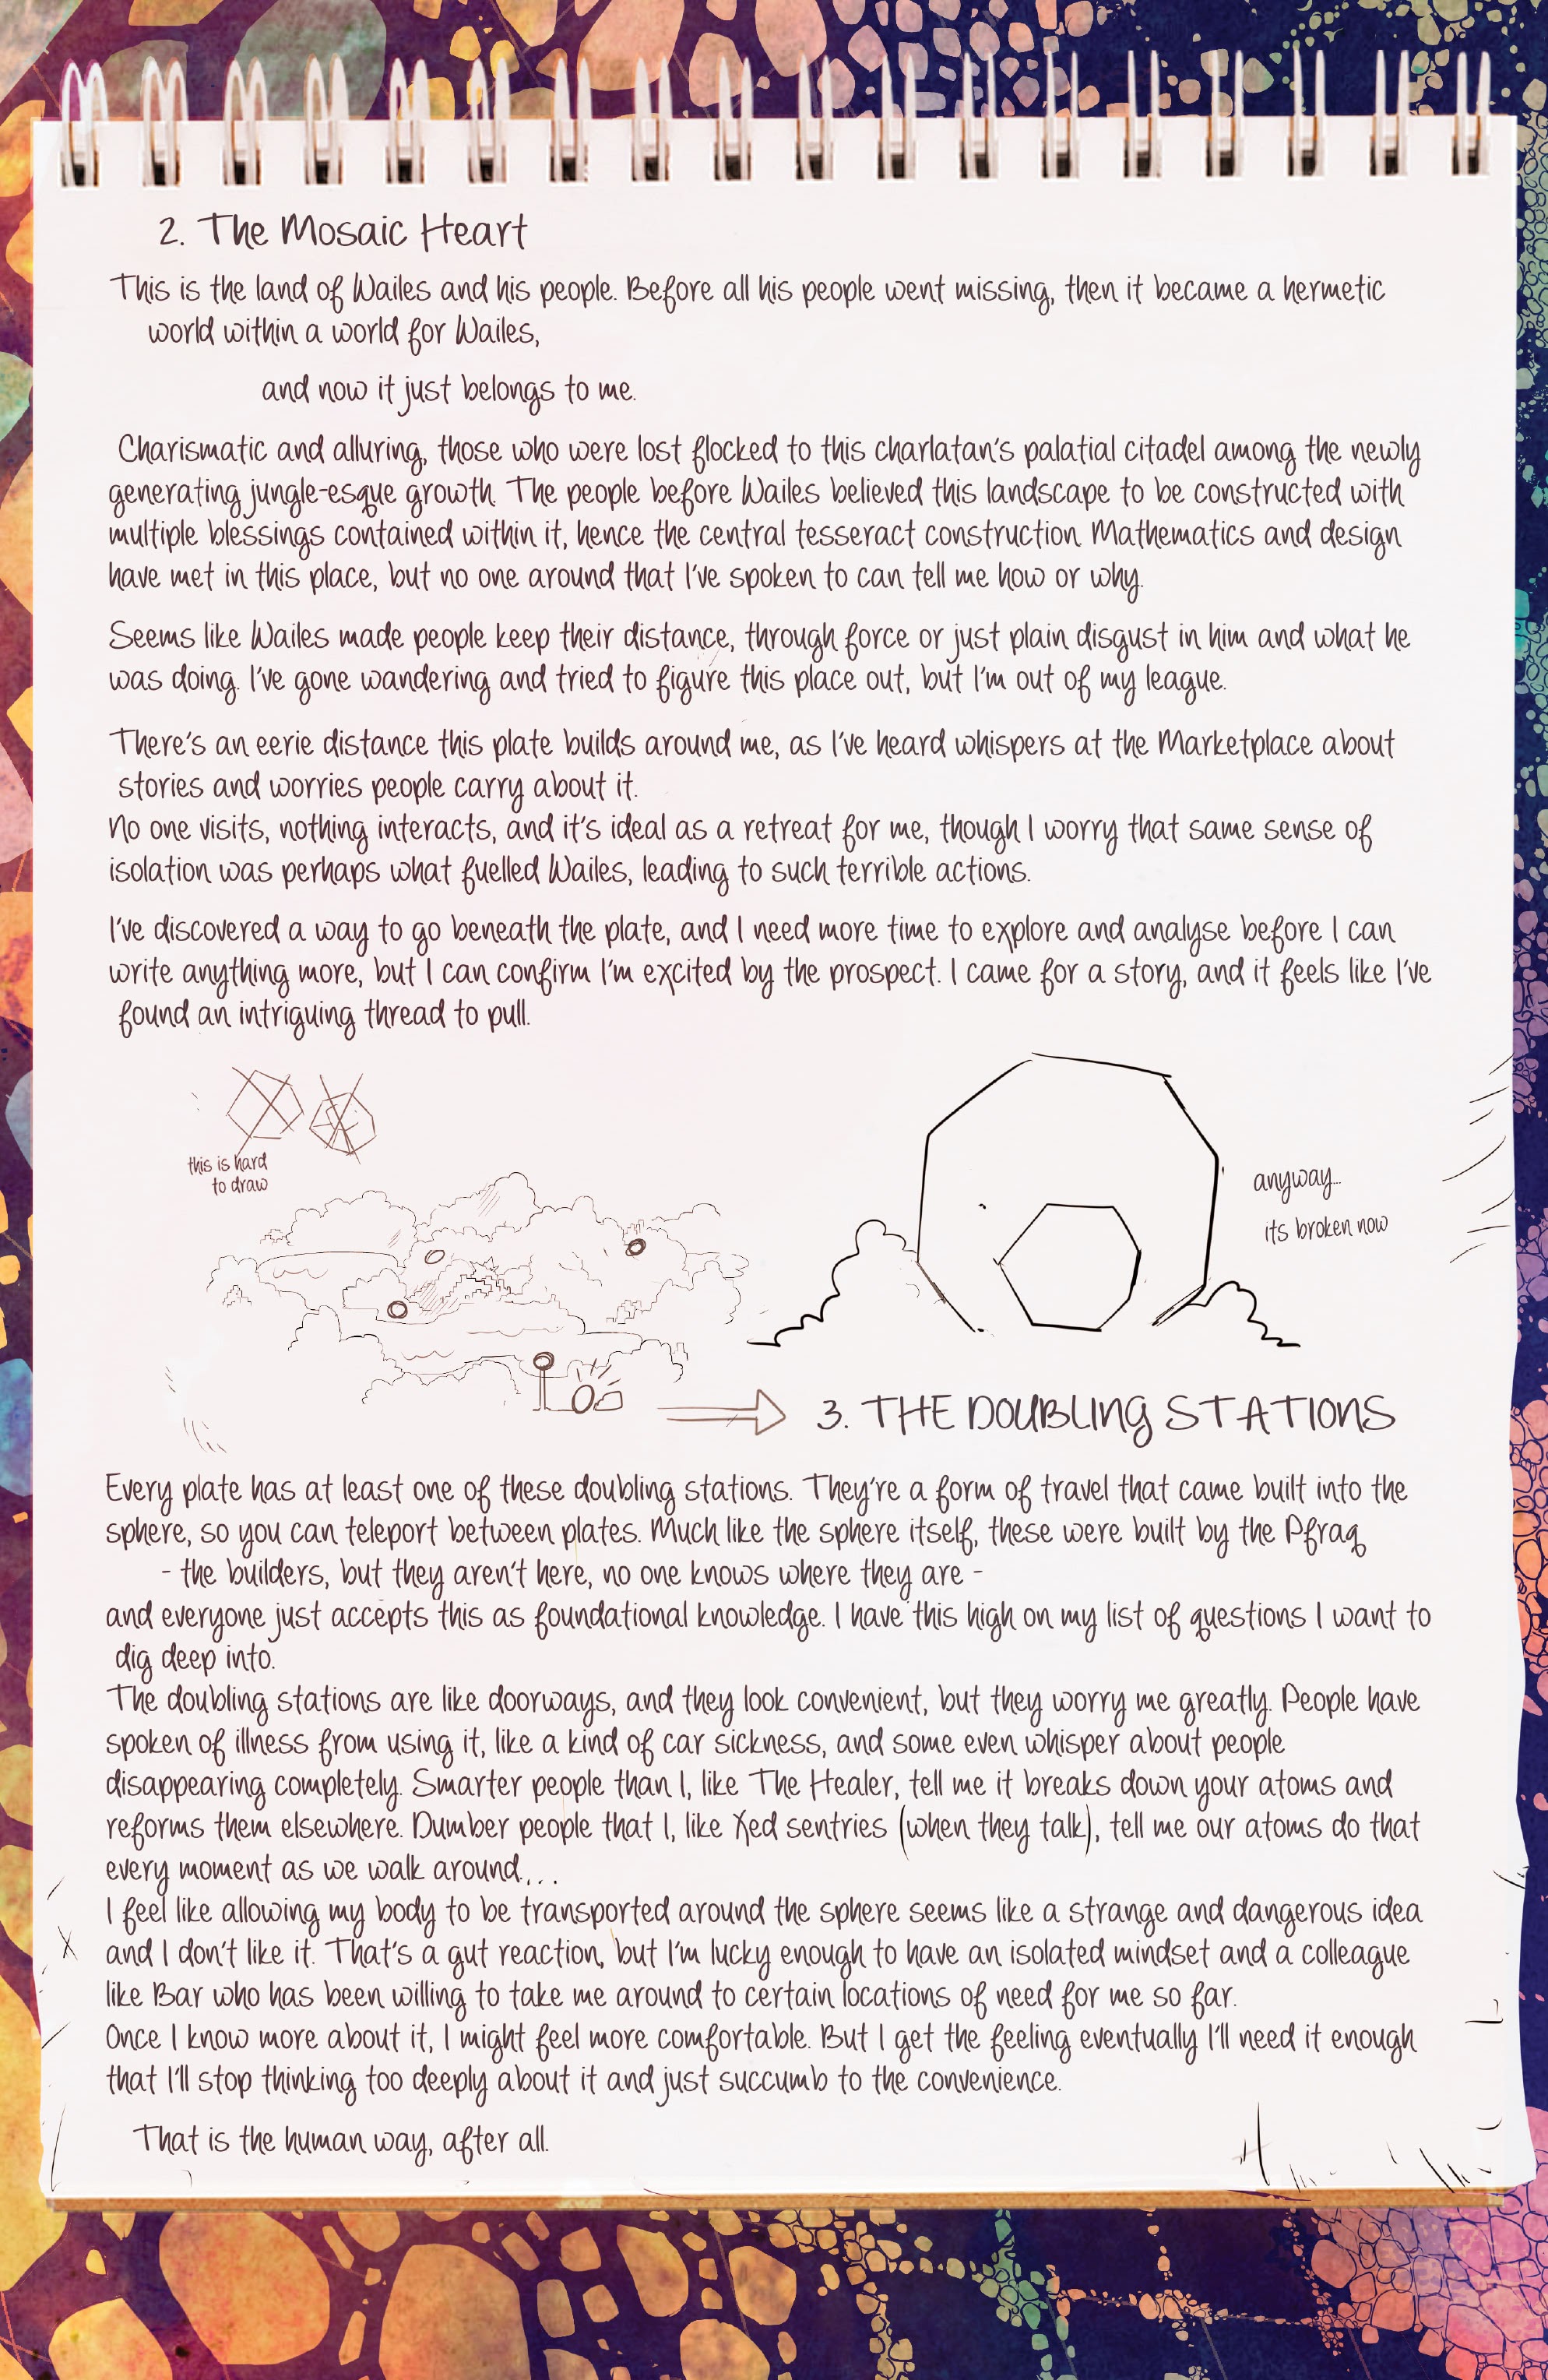 2. The Mosaic Heart
This is the land of Wailes and his people. Before all his people went missing, then it became a hermetic
world within a world for Wailes,
and now it just belongs to me.
Charismatic and alluring, those who were lost flocked to this charlatan's palatial citadel among the newly
generating jungle-esque growth. The people before Wailes believed this landscape to be constructed with
multiple blessings contained within it, hence the central tesseract construction. Mathematics and design
have met in this place, but no one around that I've spoken to can tell me how or why.
Seems like Wailes made people keep their distance, through force or just plain disgust in him and what he
was doing. I've gone wandering and tried to figure this place out, but I'm out of my league.
There's an eerie distance this plate builds around me, as I've heard whispers at the Marketplace about
stories and worries people carry about it.
No one visits, nothing interacts, and it's ideal as a retreat for me, though I worry that same sense of
isolation was perhaps what fuelled Wailes, leading to such terrible actions.
I've discovered a way to go beneath the plate, and I need more time to explore and analyse before I can
write anything more, but I can confirm I'm excited by the prospect. I came for a story, and it feels like I've
found an intriguing thread to pull.
this is hard
to draw
anyway...
its broken now
3. THE DOUBLING STATIONS
Every plate has at least one of these doubling stations. They're a form of travel that came built into the
sphere, so you can teleport between plates. Much like the sphere itself, these were built by the Pfraq
- the builders, but they aren't here, no one knows where they are -
and everyone just accepts this as foundational knowledge. I have this high on my list of questions I want to
dig deep into.
The doubling stations are like doorways, and they look convenient, but they worry me greatly. People have
spoken of illness from using it, like a kind of car sickness, and some even whisper about people
disappearing completely. Smarter people than I, like The Healer, tell me it breaks down your atoms and
reforms them elsewhere. Dumber people that I, like Xed sentries (when they talk), tell me our atoms do that
every moment as we walk around...
I feel like allowing my body to be transported around the sphere seems like a strange and dangerous idea
and I don't like it. That's a gut reaction, but I'm lucky enough to have an isolated mindset and a colleague
like Bar who has been willing to take me around to certain locations of need for me so far.
Once I know more about it, I might feel more comfortable. But I get the feeling eventually I'll need it enough
that I'll stop thinking too deeply about it and just succumb to the convenience.
That is the human way, after all.